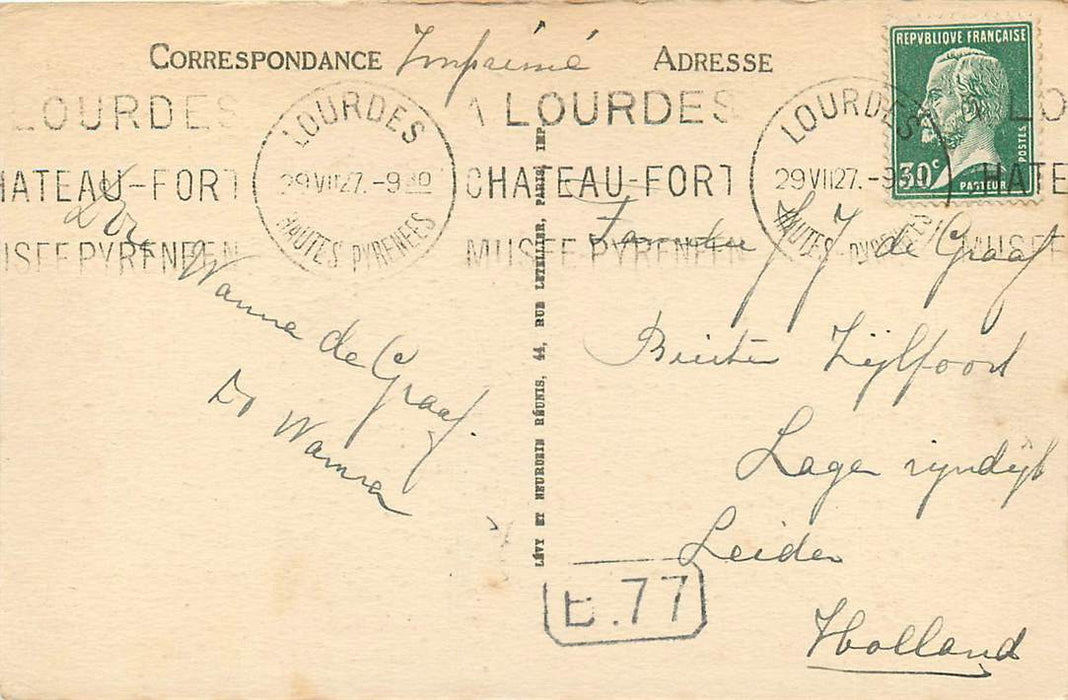 CORRESPONDANCE Imprimé ADRESSE
REPVBLIQVE FRANÇAISE
POSTES
30c PASTEUR
LOURDES
CHATEAU-FORT
MUSEE PYRENEEN
LOURDES
29 VII 27. -9 30
HAUTES PYRENEES
A LOURDES
CHATEAU-FORT
MUSEE PYRENEEN
LOURDES
29 VII 27. -9 30
HAUTES-PYRENEES
LO
HATE
MUSEE
Wanna de Graaf.
Wanna
LÉVY ET NEURDEIN RÉUNIS, 44, RUE LETELLIER, PARIS, IMP
J de Graaf
Zijlpoort
Lage rijndijk
Leiden
Holland
B.77